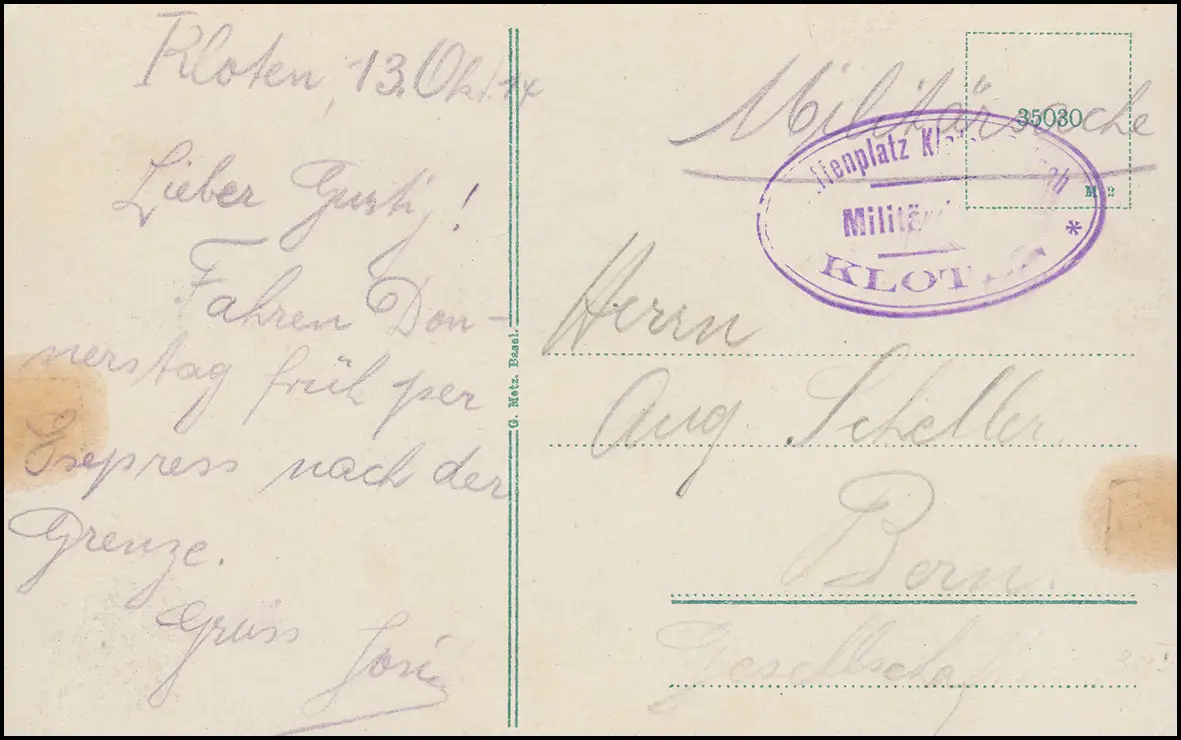 Kloten, 13. Okt. 14
Lieber Gusti!
Fahren Don-
nerstag früh per
Expess nach der
Grenze.
Grüss
G. Metz. Basel.
Militärsache
35030
M 2
KLOTEN *
Herrn
Aug. Scheller.
Bern.
Gesellschafts